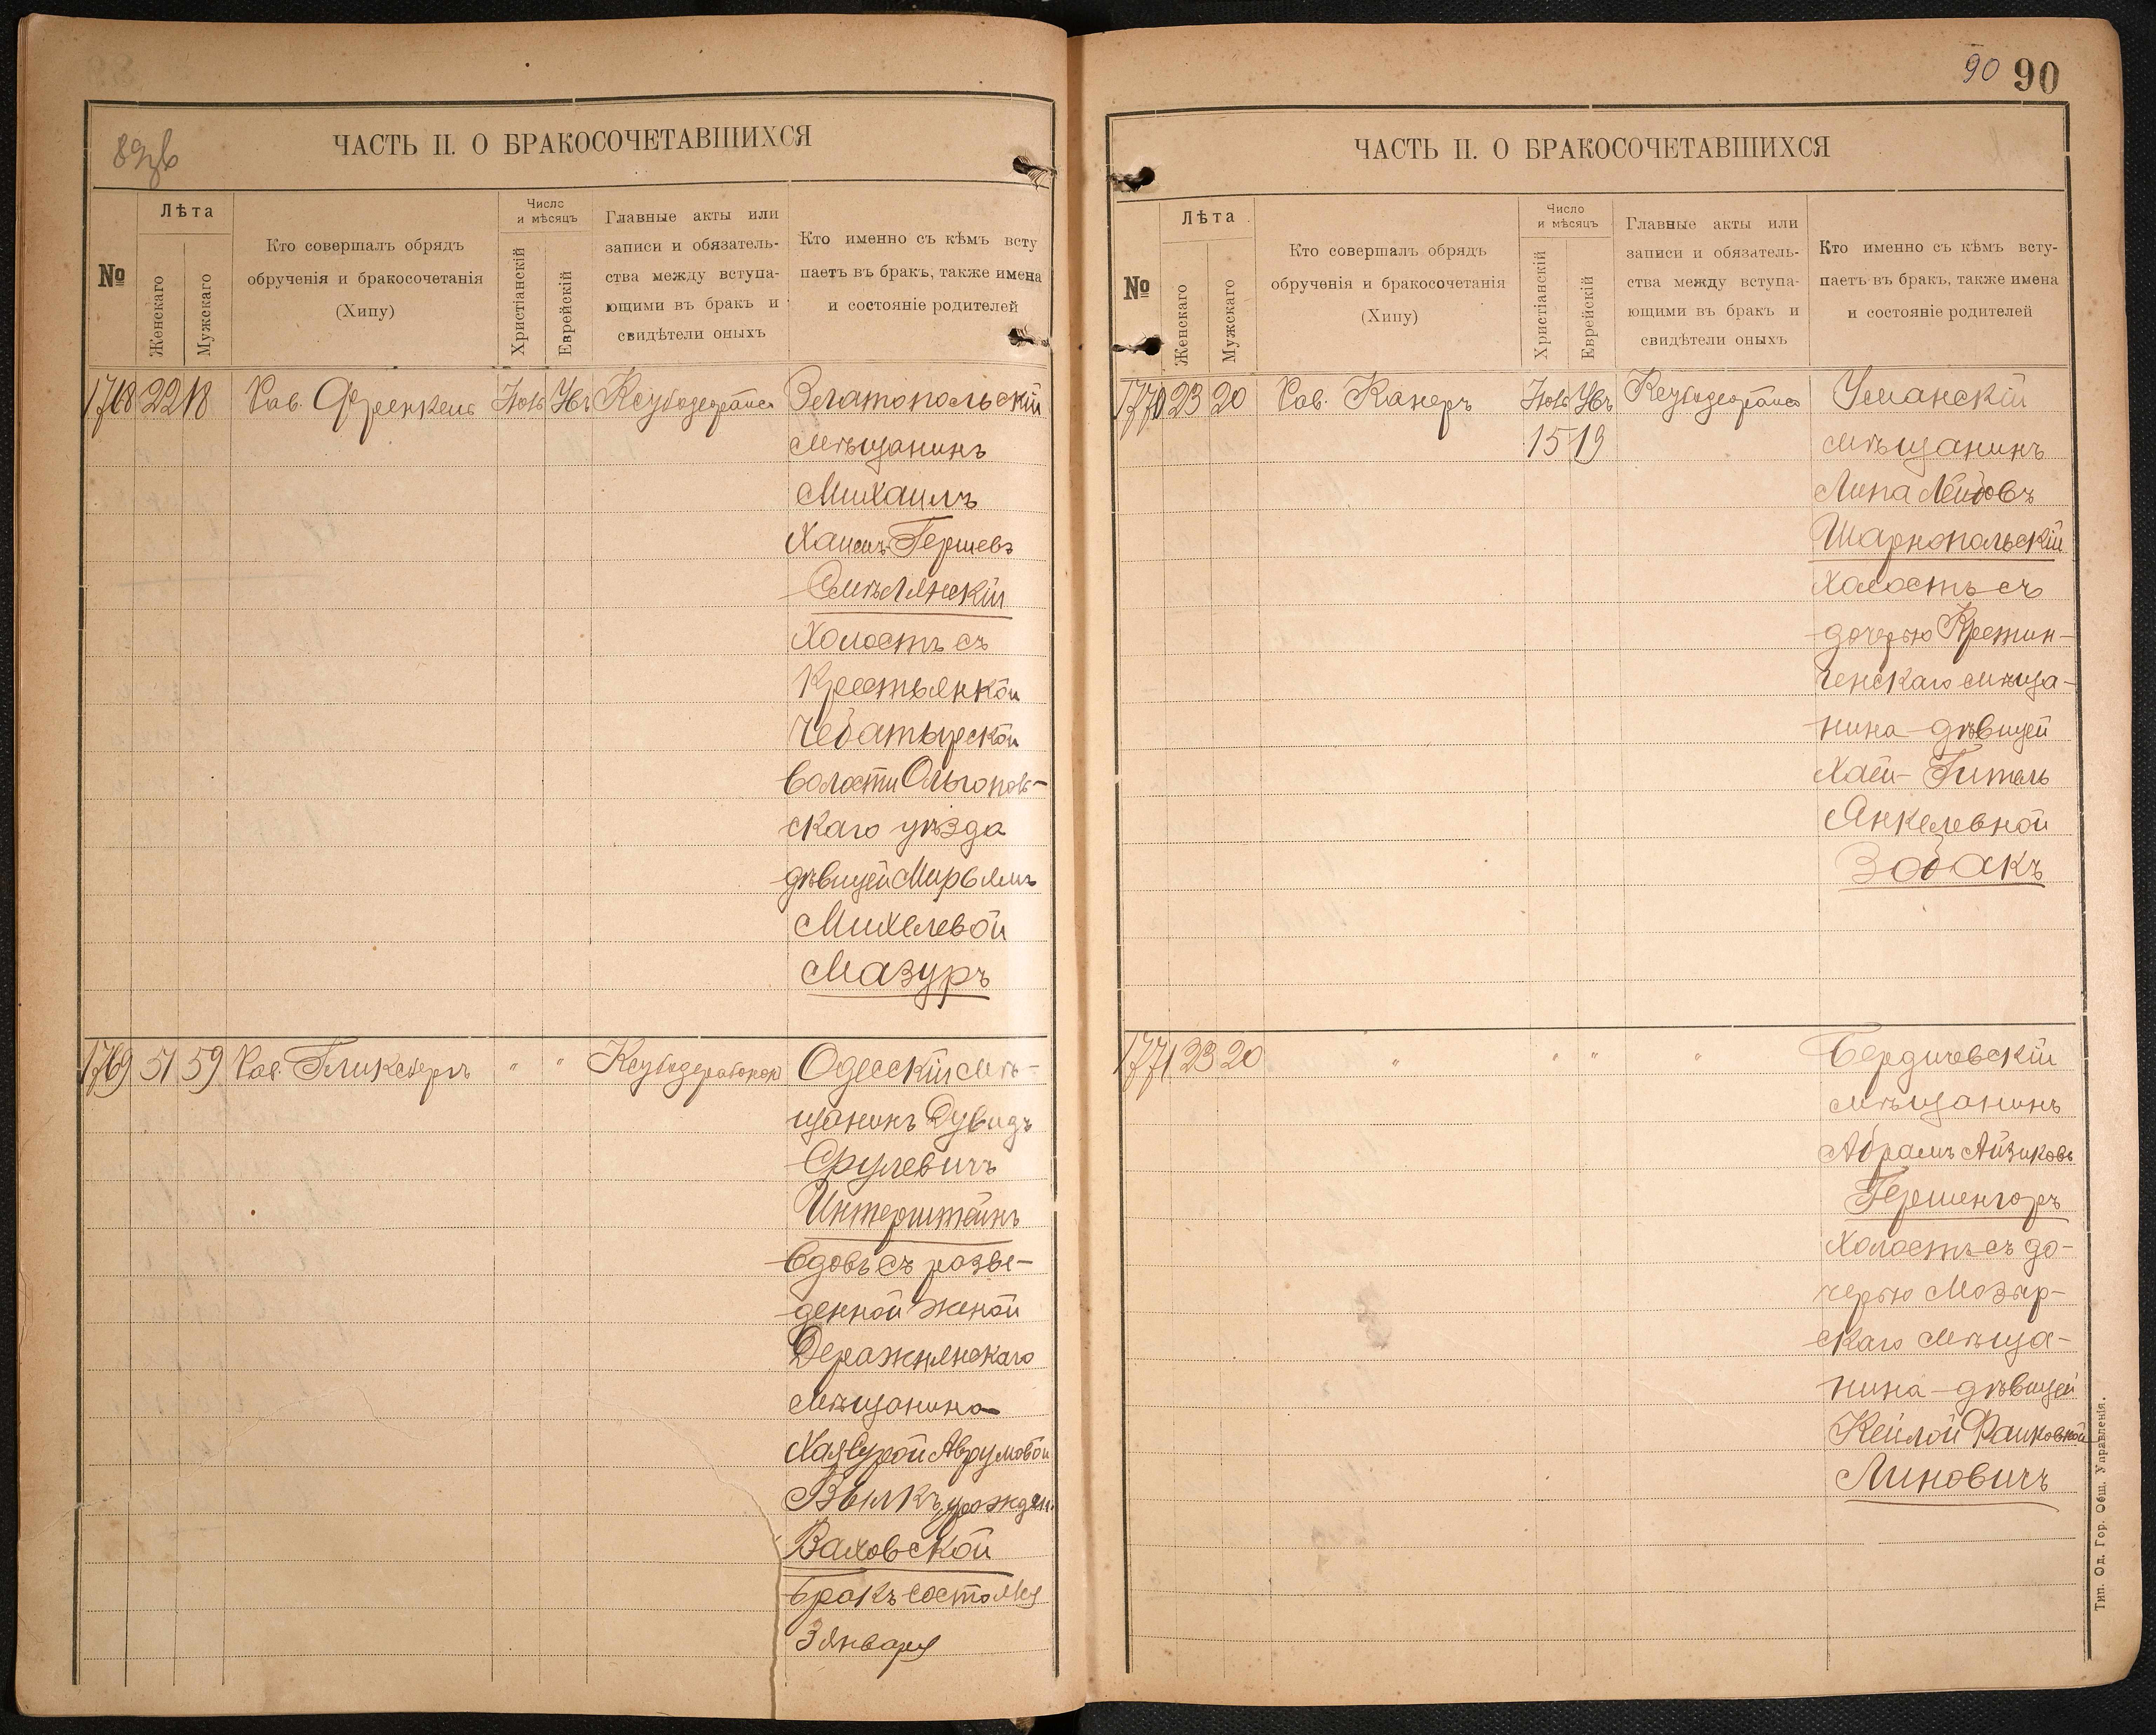 89об
ЧАСТЬ II. О БРАКОСОЧЕТАВШИХСЯ
№
Лѣта
Женскаго
Мужскаго
Кто совершалъ обрядъ
обрученія и бракосочетанія
(Хипу)
Число
и мѣсяцъ
Христіанскій
Еврейскій
Главные акты или
записи и обязатель-
ства между вступа-
ющими въ бракъ и
свидѣтели оныхъ
Кто именно съ кѣмъ всту
паетъ въ бракъ, также имена
и состояніе родителей
1768 22 18 Рав. Френкель
Златопольскій
мѣщанинъ
Михаилъ
Хаимъ Гершевъ
Смѣлянскій
холостъ съ
крестьянкой
Чебатырской
волости Ольгополь-
скаго уѣзда
дѣвицей Мирьямъ
Михелевой
Мазуръ
1769 51 59 Рав. Гликсбергъ " "
Одесскій мѣ-
щанинъ Дувидъ
Срулевичъ
Интерштейнъ
вдовъ съ разве-
денной женой
Деражнянскаго
мѣщанина
Хая Сурой Аврумовой
Вылкъ, урожден.
Ваховской
бракъ состоялся
3 января
90 90
ЧАСТЬ II. О БРАКОСОЧЕТАВШИХСЯ
№
Лѣта
Женскаго
Мужскаго
Кто совершалъ обрядъ
обрученія и бракосочетанія
(Хипу)
Число
и мѣсяцъ
Христіанскій
Еврейскій
Главные акты или
записи и обязатель-
ства между вступа-
ющими въ бракъ и
свидѣтели оныхъ
Кто именно съ кѣмъ всту-
паетъ въ бракъ, также имена
и состояніе родителей
1770 23 20 Рав. Канеръ
Уманскій
15 19 мѣщанинъ
Липа Лейбовъ
Шаргопольскій
холостъ съ
дочерью Кремен-
ченскаго мѣща-
нина - дѣвицей
Хаей - Гитель
Янкелевной
Зобакъ
1771 23 20 " " " "
Бердичевскій
мѣщанинъ
Абрамъ Айзиковъ
Гершенгоръ
холостъ съ до-
черью Мозыр-
скаго мѣща-
нина - дѣвицей
Кейлой Фаиковной
Линовичъ
Тип. Од. Гор. Общ. Управленія.